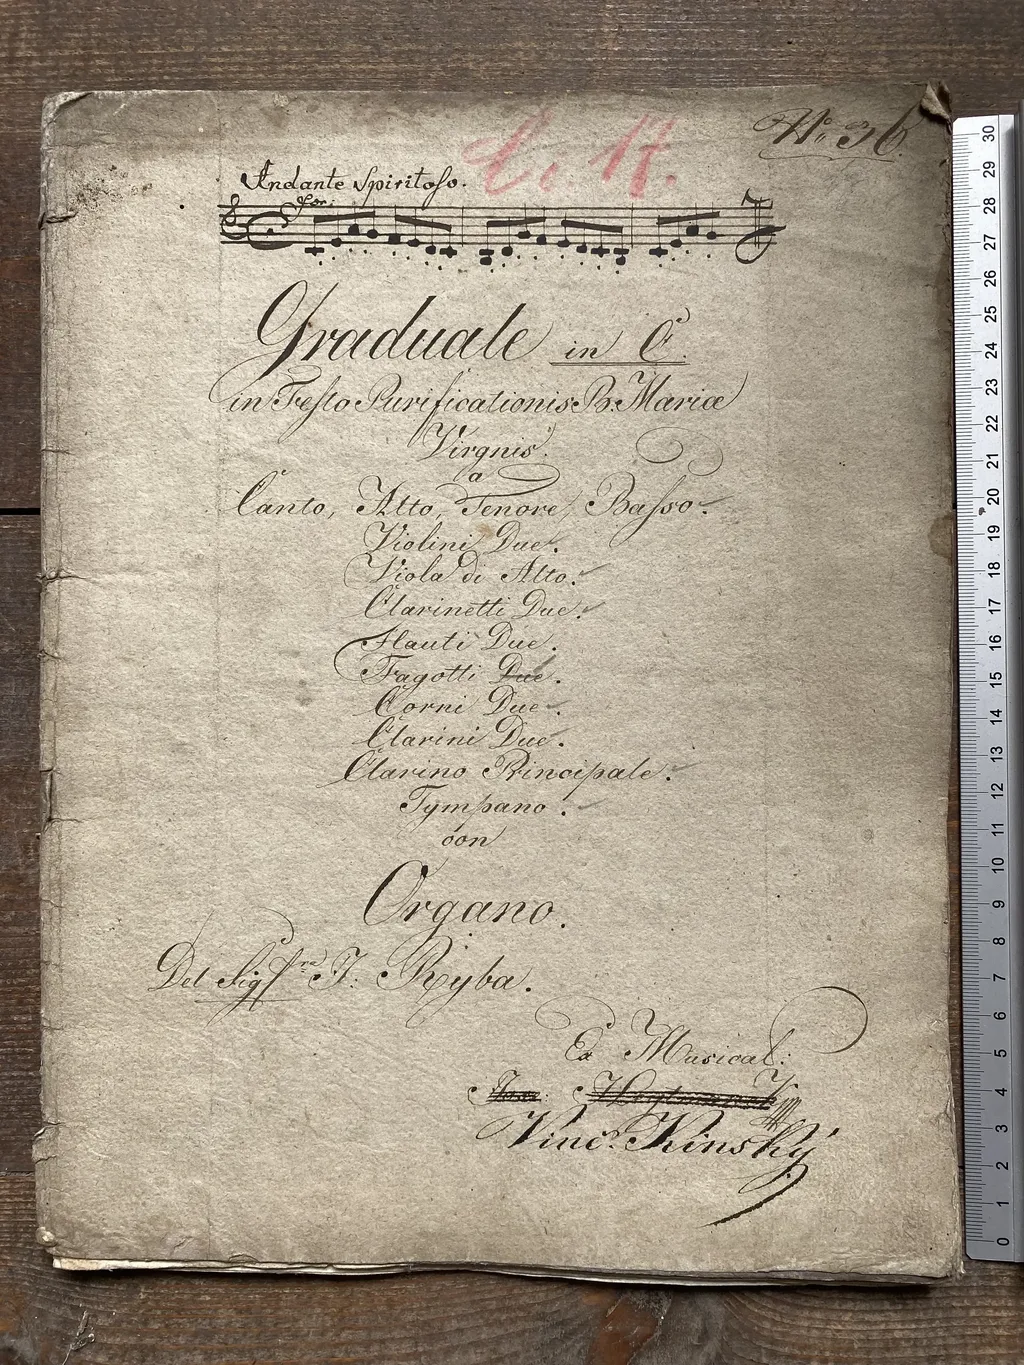 No 36.
C. 17.
Andante Spiritoso.
for:
Graduale in C.
in Festo Purificationis B: Mariæ
Virgnis.
a
Canto, Alto, Tenore, Basso.
Violini Due.
Viola di Alto.
Clarinetti Due.
Flauti Due.
Fagotti Due.
Corni Due.
Clarini Due.
Clarino Principale.
Tympano.
con
Organo.
Del Sigre J: Ryba.
Ex Musical:
Vinc: Kinský
30
29
28
27
26
25
24
23
22
21
20
19
18
17
16
15
14
13
12
11
10
9
8
7
6
5
4
3
2
1
0